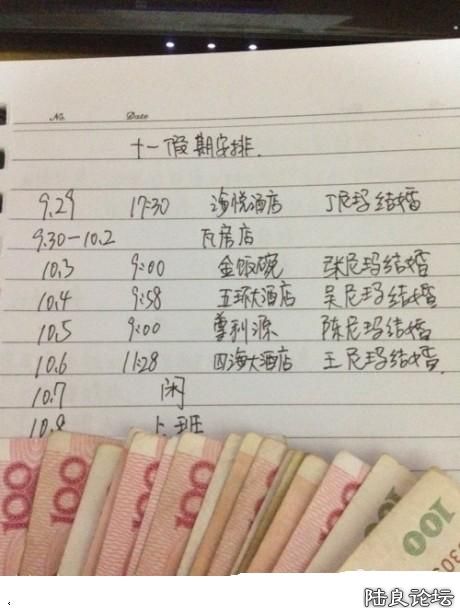 No. Date
十一假期安排.
9.29 17:30 海悦酒店 丁尼玛结婚
9.30-10.2 瓦房店
10.3 9:00 金饭碗 张尼玛结婚
10.4 9:58 五环大酒店 吴尼玛结婚
10.5 9:00 尊利源 陈尼玛结婚
10.6 11:28 四海大酒店 王尼玛结婚.
10.7 闲
10.8 上班
100 100 100 100 100 100
陆良论坛